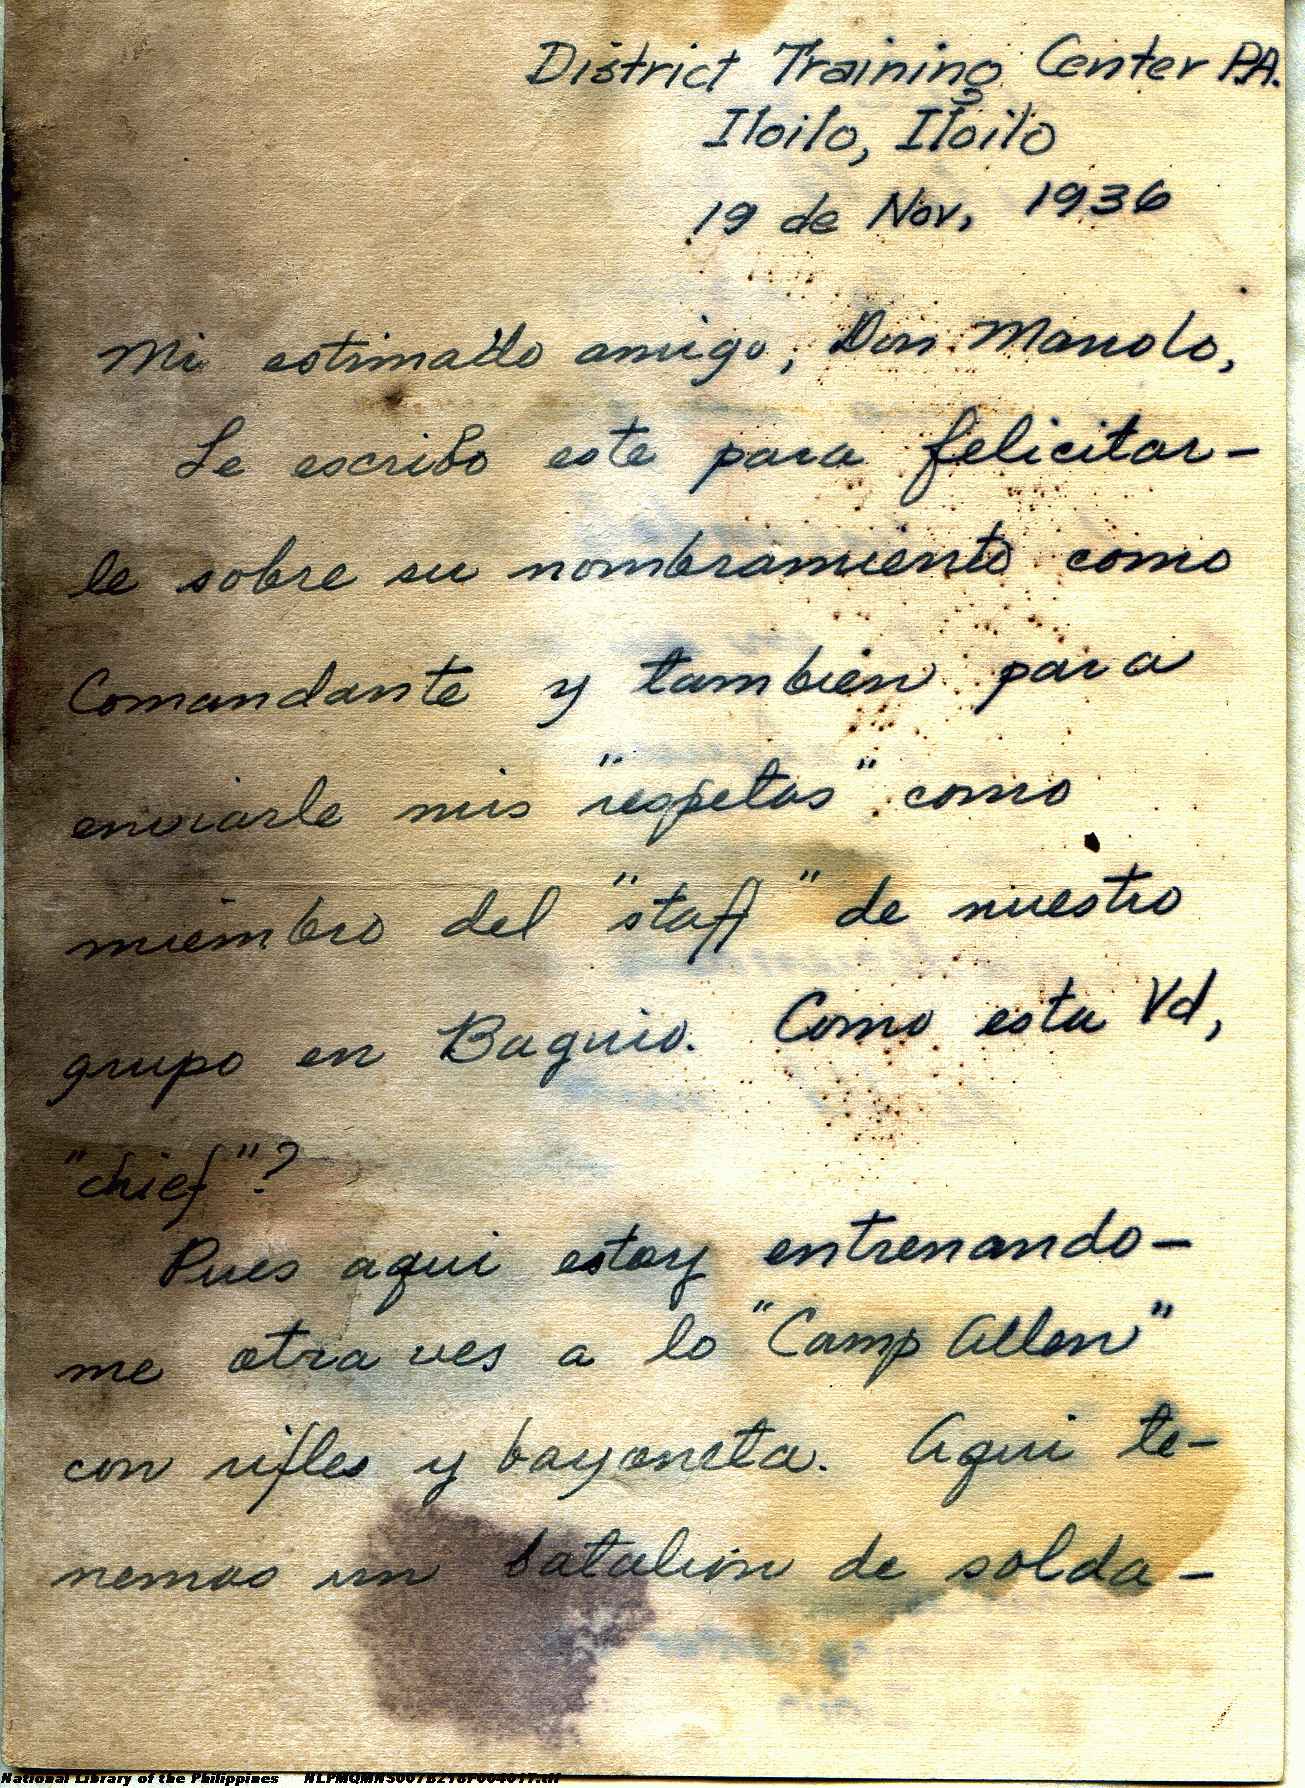 District Training Center P.A.
Iloilo, Iloilo
19 de Nov, 1936
Mi estimado amigo, Don Manolo,
Le escribo este para felicitar-
le sobre su nombramiento como
Comandante y tambien para
enviarle mis "respetos" como
miembro del "staff" de nuestro
grupo en Baguio. Como esta Vd,
"chief"?
Pues aqui estoy entrenando-
me otra ves a lo "Camp Allen"
con rifles y bayoneta. Aqui te-
nemos un batalion de solda-
National Library of the Philippines